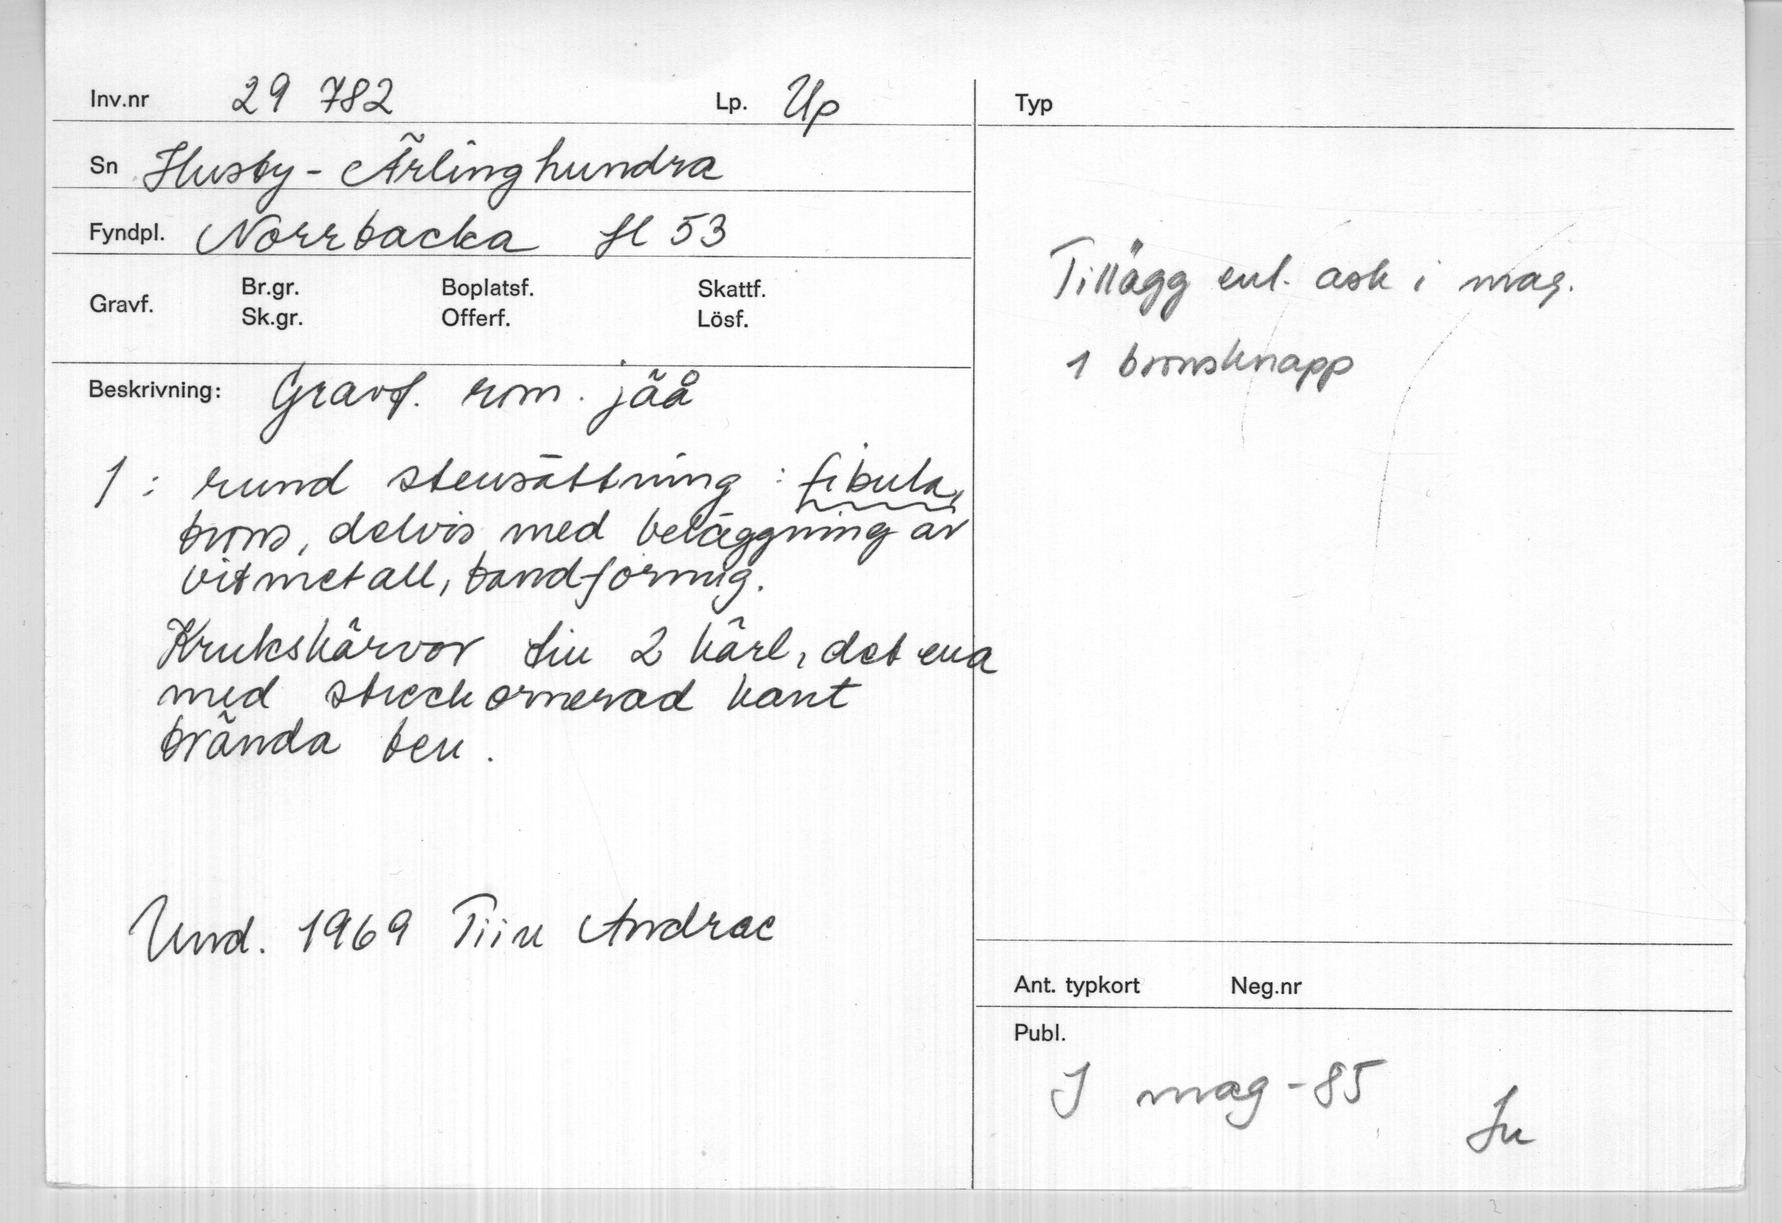 Inv.nr 29 782 Lp. Up
Sn Husby-Ärlinghundra
Fyndpl. Norrbacka fl 53
Gravf. Br.gr. Boplatsf. Skattf.
Sk.gr. Offerf. Lösf.
Beskrivning: Gravf. rom. jäå
1: rund stensättning: fibula,
brons, delvis med beläggning av
vitmetall, bandformig.
Krukskärvor fin 2 kärl, det ena
med streckornerad kant
brända ben.
Und. 1969 Tiiu Andrae
Typ
Tillägg enl. ask i mag.
1 bronsknapp
Ant. typkort Neg.nr
Publ.
I mag -85